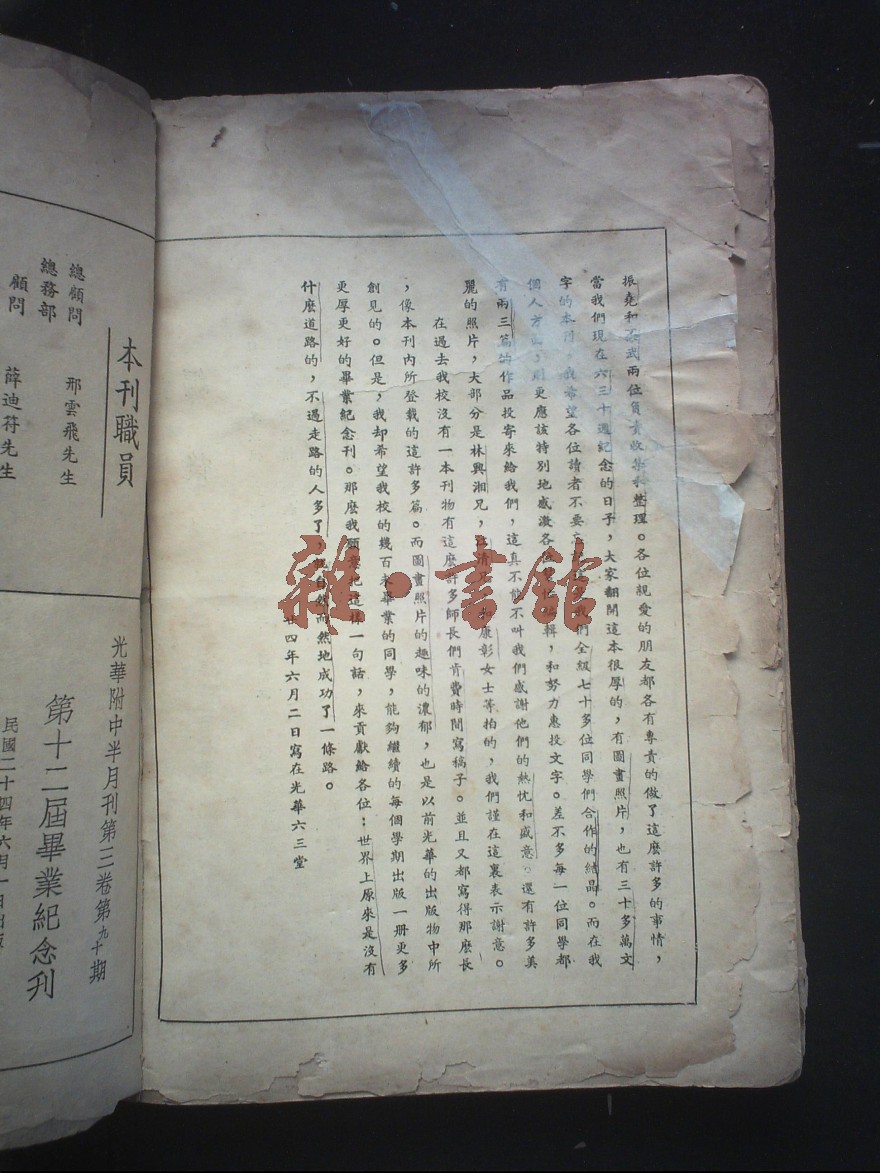 振堯和 武兩位負責收集和整理。各位親愛的朋友都各有專責的做了這麼許多的事情,
當我們現在六三十週紀念的日子,大家翻開這本很厚的,有圖畫照片,也有三十多萬文
字的本刊 我希望各位讀者不要 我們全級七十多位同學們合作的結晶。而在我
個人方面,則更應該特別地感激各 輯,和努力惠投文字。差不多每一位同學都
有兩三篇的作品投寄來給我們,這真不能不叫我們感謝他們的熱忱和盛意。還有許多美
麗的照片,大部分是林興湘兄, 清兄 康彰女士等拍的,我們謹在這裏表示謝意。
在過去我校沒有一本刊物有這麼許多師長們肯費時間寫稿子。並且又都寫得那麼長
,像本刊內所登載的這許多篇。而圖畫照片的趣味的濃郁,也是以前光華的出版物中所
創見的。但是,我却希望我校的幾百未畢業的同學,能夠繼續的每個學期出版一册更多
更厚更好的畢業紀念刊。那麼我願意把這樣一句話,來貢獻給各位:世界上原來是沒有
什麼道路的,不過走路的人多了,就自然而然地成功了一條路。
廿四年六月二日寫在光華六三堂
本刊職員
總顧問 邢雲飛先生
總務部
顧問 薛迪符先生
光華附中半月刊第三卷第九十期
第十二屆畢業紀念刊
民國二十四年六月一日出版
雜·書館